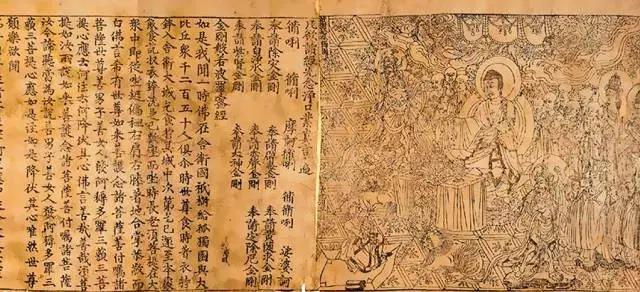 凡欲讀經先念淨口業真言一遍
脩唎 脩唎 摩訶脩唎 脩脩唎 娑婆訶
奉請除灾金剛 奉請辟毒金剛 奉請黃隨求金剛
奉請白淨水金剛 奉請赤聲金剛 奉請定除厄金剛
奉請紫賢金剛 奉請大神金剛
金剛般若波羅蜜經
如是我聞一時佛在舍衛國祇樹給孤獨園與大
比丘衆千二百五十人俱爾時世尊食時著衣持
鉢入舍衛大城乞食於其城中次第乞已還至本處
飯食訖收衣鉢洗足已敷座而坐時長老須菩提在大
衆中即從座起偏袒右肩右膝著地合掌恭敬而
白佛言希有世尊如來善護念諸菩薩善付囑諸
菩薩世尊善男子善女人發阿耨多羅三藐三菩
提心應云何住云何降伏其心佛言善哉善哉須菩
提如汝所說如來善護念諸菩薩善付囑諸菩薩
汝今諦聽當為汝說善男子善女人發阿耨多羅三
藐三菩提心應如是住如是降伏其心唯然世尊
願樂欲聞